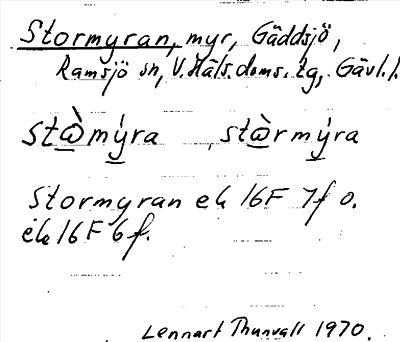 Stormyran, myr, Gäddsjö,
Ramsjö sn, V. Häls. doms. tg, Gävl. l.
stὼmýra , stòrmýra
Stormyran ek 16F 7f o.
ek 16F 6f.
Lennart Thunvall 1970.